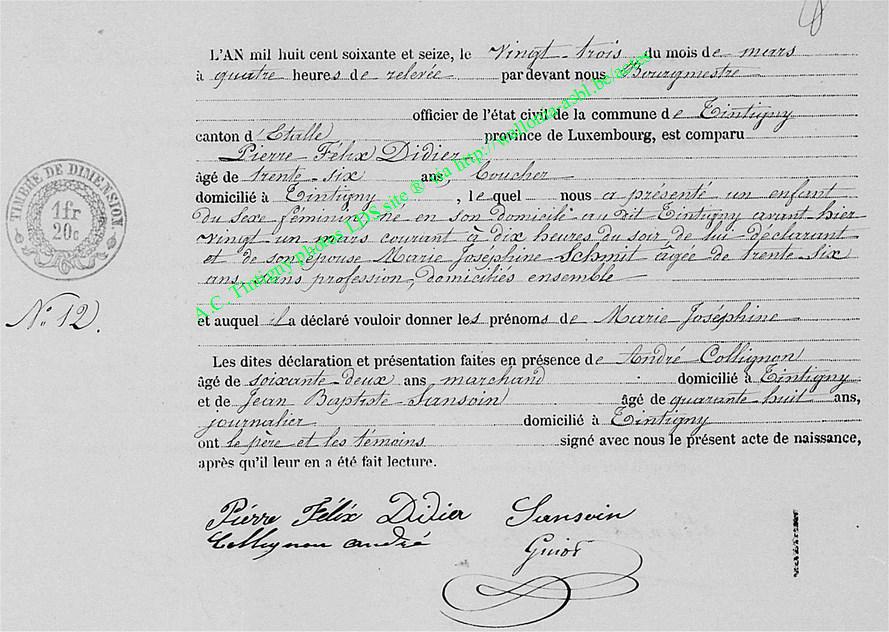 L'AN mil huit cent soixante et seize, le Vingt-trois du mois de mars
à quatre heures de relevée par devant nous Bourgmestre
officier de l'état civil de la commune de Tintigny
canton d'Etalle province de Luxembourg, est comparu
Pierre Félix Didier
âgé de trente-six ans
domicilié à Tintigny, lequel nous a présenté un enfant
du sexe féminin né en son domicile au dit Tintigny avant hier
vingt un mars courant à dix heures du soir de lui déclarant
et de son épouse Marie Joséphine Schmit âgée de trente-six
ans, sans profession, domiciliés ensemble
et auquel il a déclaré vouloir donner les prénoms de Marie Joséphine
Les dites déclaration et présentation faites en présence de André Collignon
âgé de soixante-deux ans marchand domicilié à Tintigny
et de Jean Baptiste Sansoin âgé de quarante-huit ans,
journalier domicilié à Tintigny
ont le père et les témoins signé avec nous le présent acte de naissance,
après qu'il leur en a été fait lecture.
TIMBRE DE DIMENSION
1fr
20c
N° 12.
Pierre Félix Didier Sansoin
Collignon andré Guiot
A.C. Tintigny-photos LDS site ® via http://wallonia-asbl.be/actes